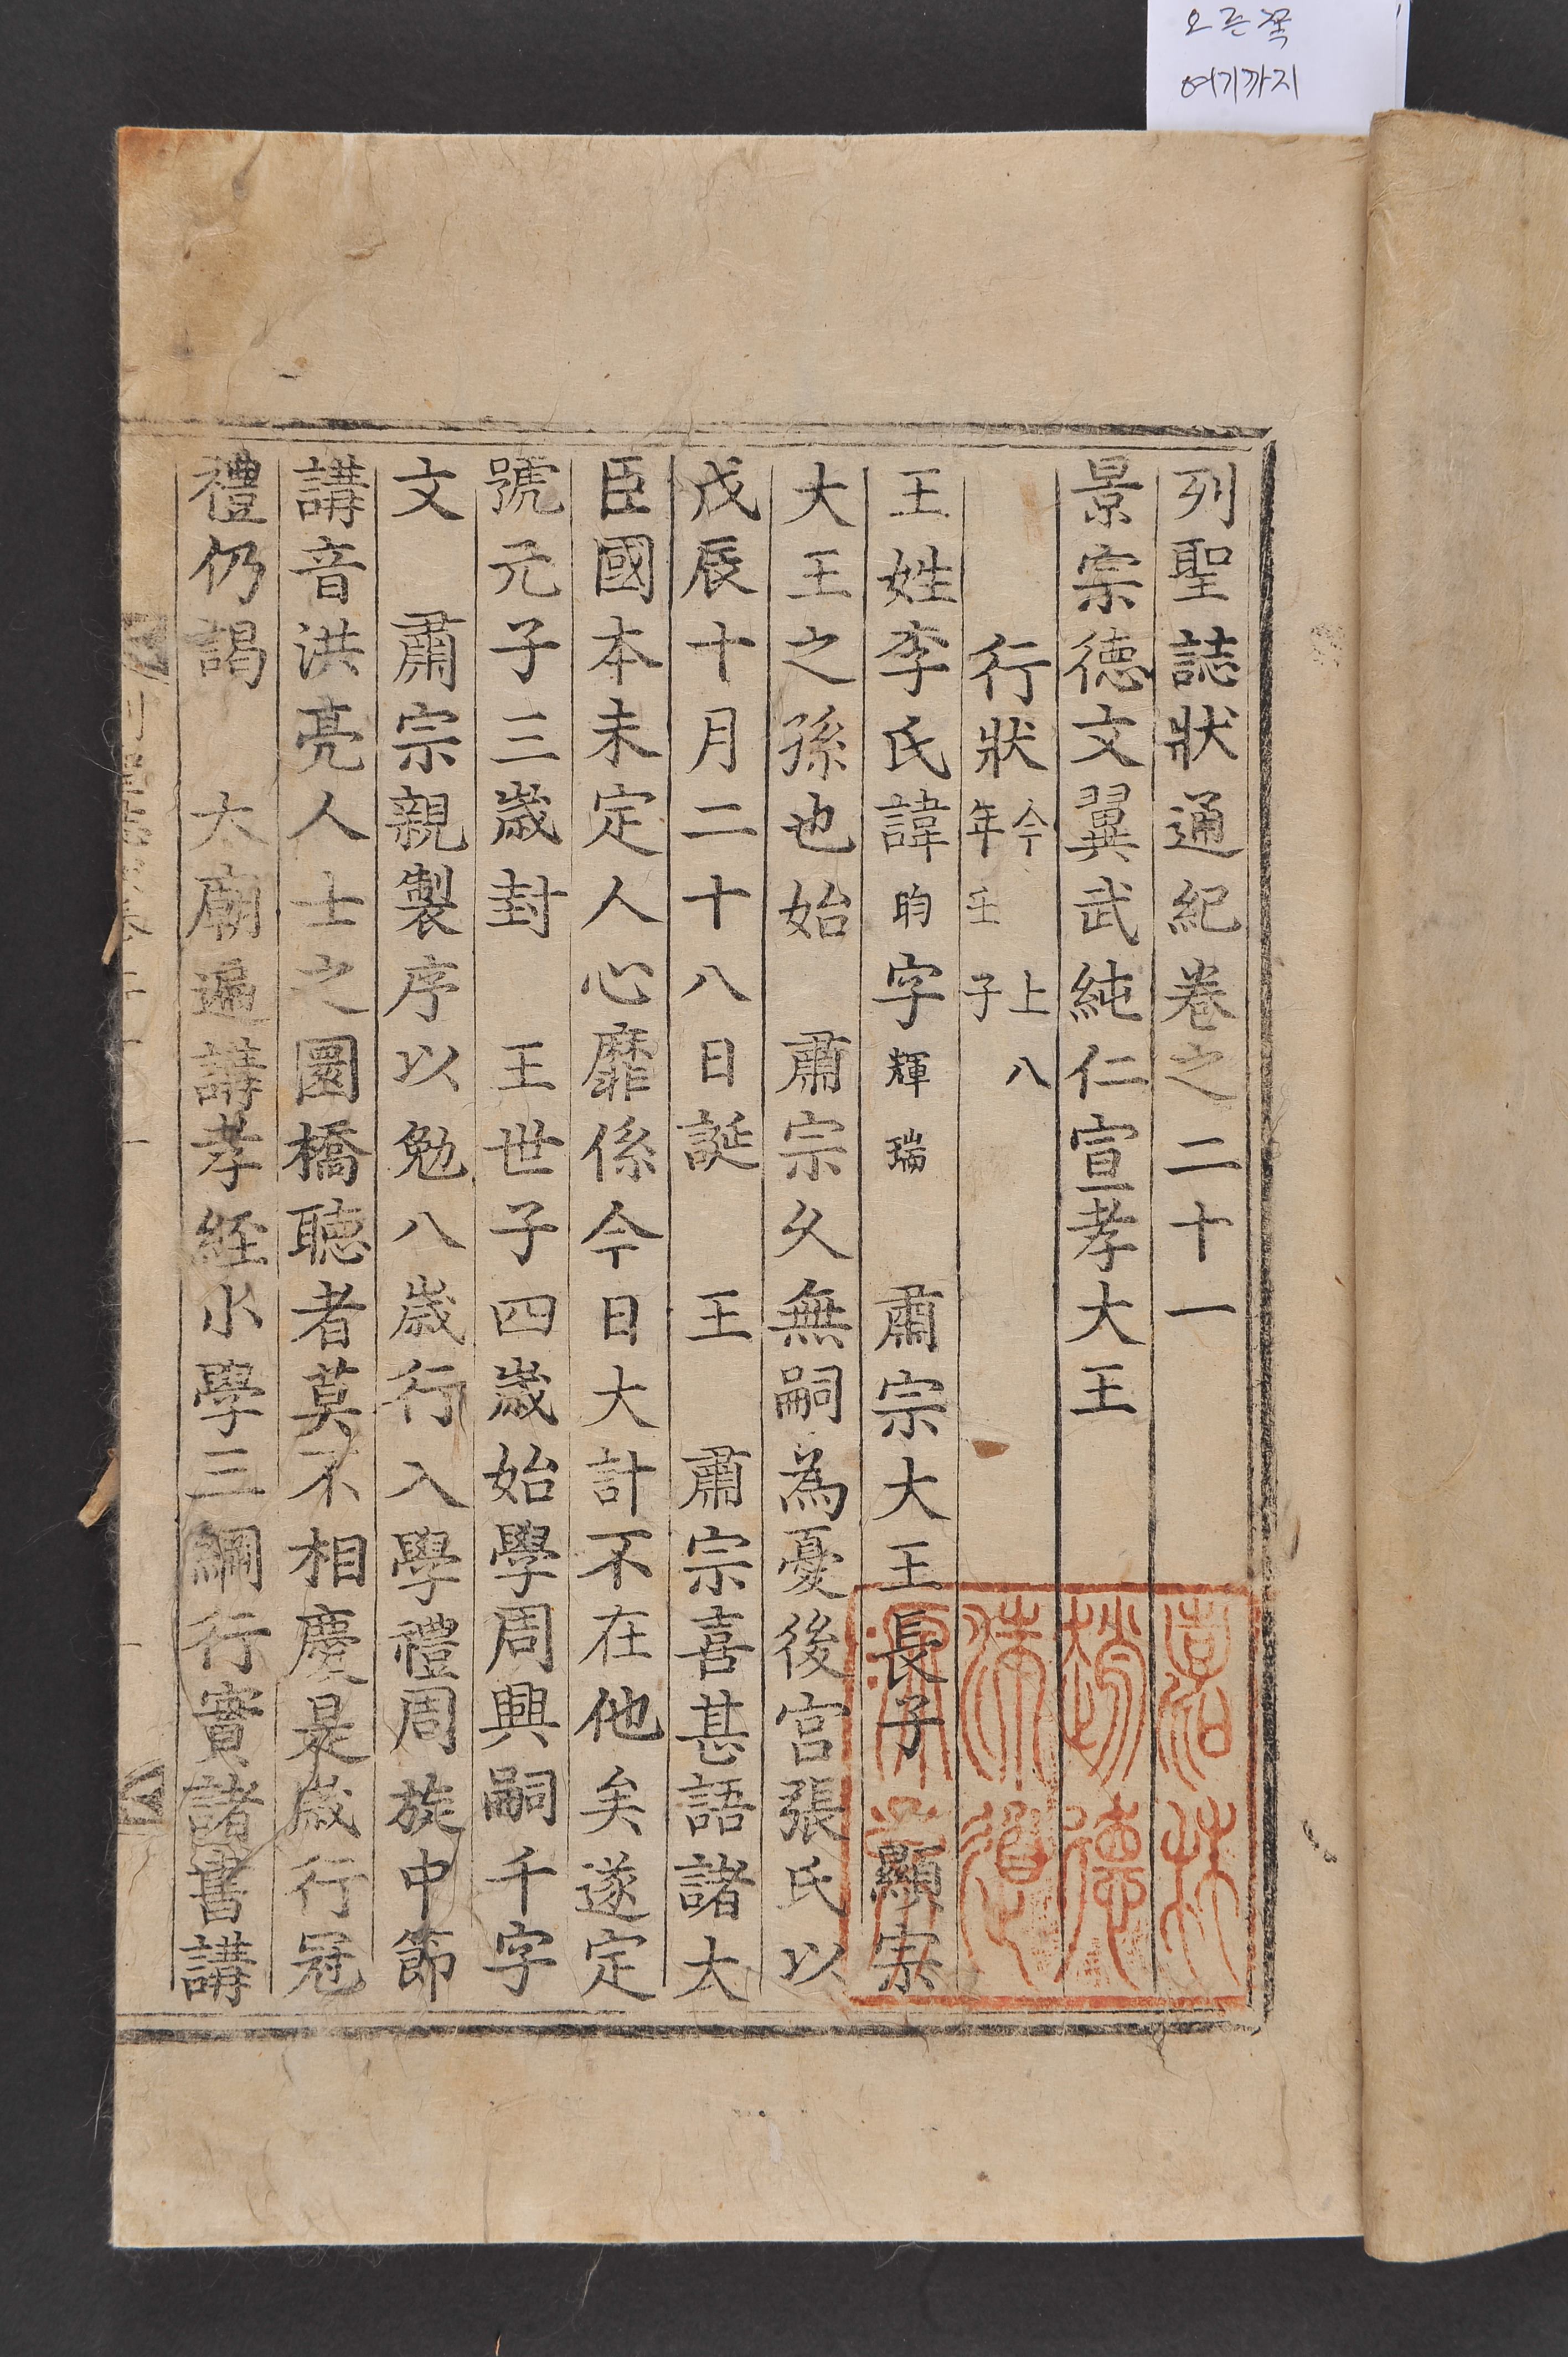 오른쪽
여기까지
列聖誌狀通紀卷之二十一
景宗德文翼武純仁宣孝大王
行狀 今上八年壬子
王姓李氏諱昀字輝瑞 肅宗大王長子 顯宗
大王之孫也始 肅宗久無嗣為憂後宮張氏以
戊辰十月二十八日誕 王 肅宗喜甚語諸大
臣國本未定人心靡係今日大計不在他矣遂定
號元子三歲封 王世子四歲始學周興嗣千字
文 肅宗親製序以勉八歲行入學禮周旋中節
講音洪亮人士之圜橋聽者莫不相慶是歲行冠
禮仍謁 太廟遍講孝經小學三綱行實諸書講